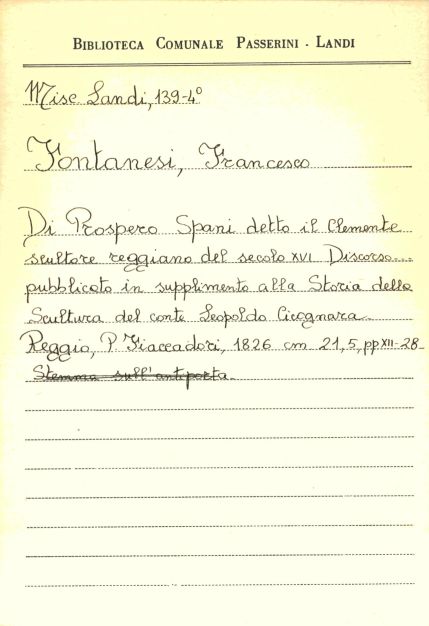 BIBLIOTECA COMUNALE PASSERINI - LANDI
Misc Landi, 139-4°
Fontanesi, Francesco
Di Prospero Spani detto il Clemente
scultore reggiano del secolo XVI Discorso
pubblicato in supplimento alla Storia della
Scultura del conte Leopoldo Cicognara
Reggio, P. Fiaccadori, 1826 cm 21,5, pp XII-28
Stemma sull'antiporta